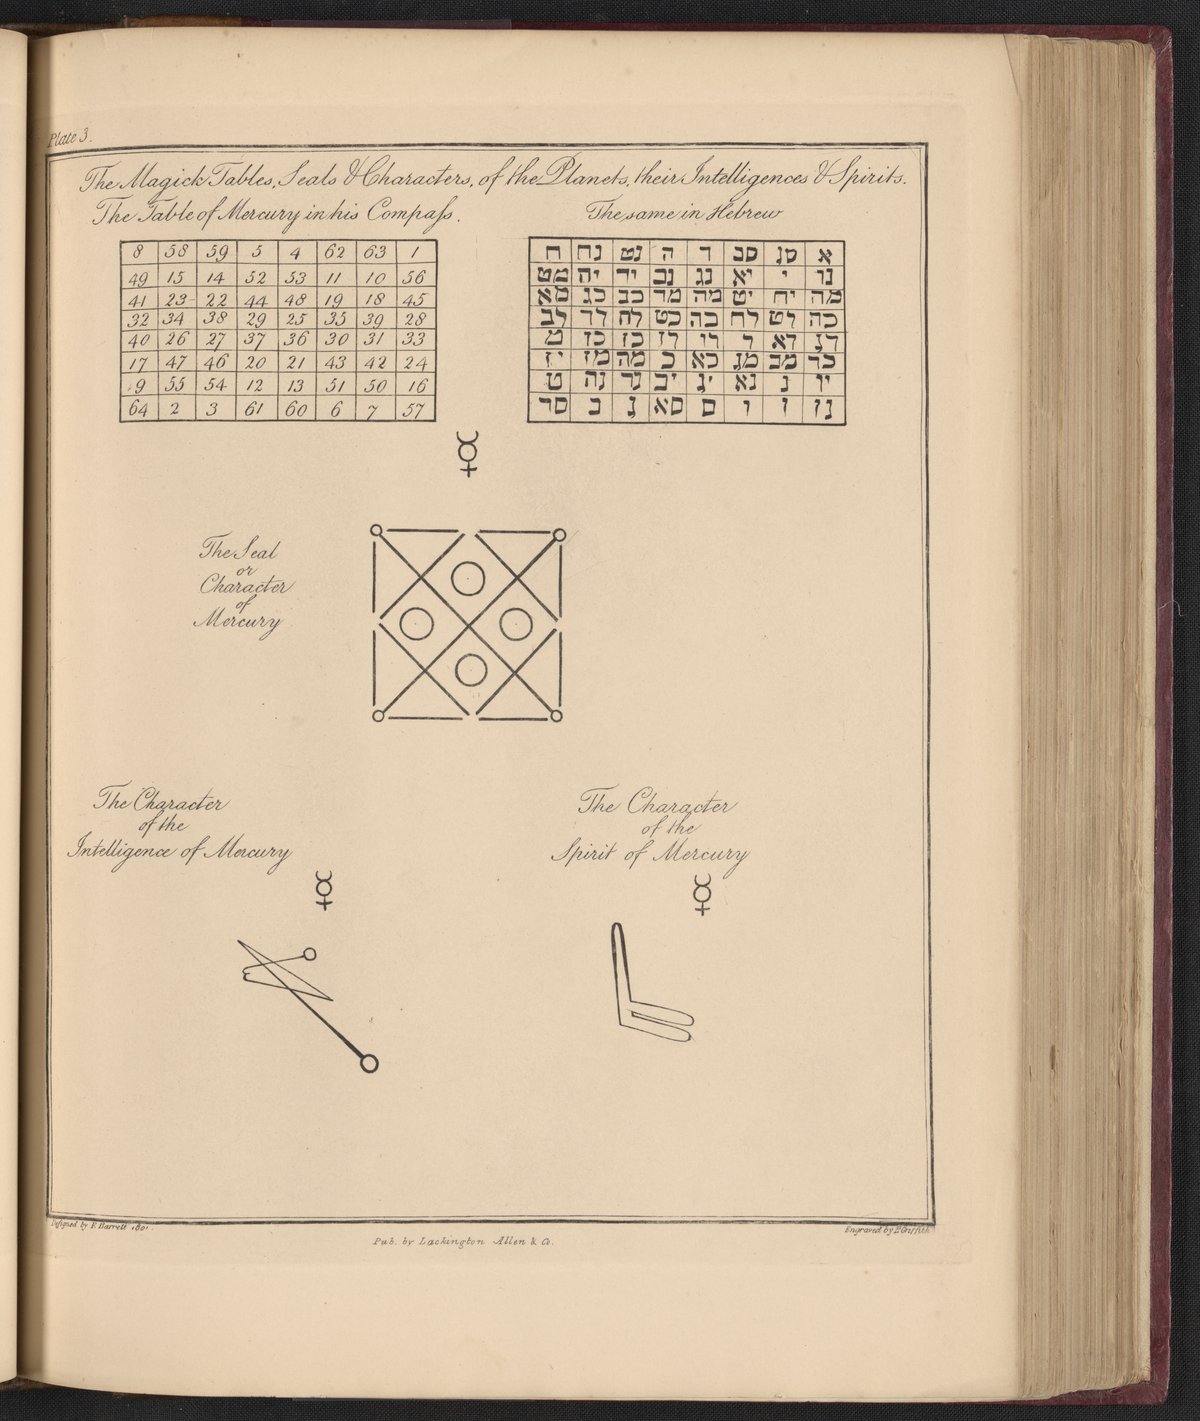 Plate 3.
The Magick Tables, Seals & Characters, of the Planets, their Intelligences & Spirits.
The Table of Mercury in his Compaſs.
8 58 59 5 4 62 63 1
49 15 14 52 53 11 10 56
41 23 22 44 48 19 18 45
32 34 38 29 25 35 39 28
40 26 27 37 36 30 31 33
17 47 46 20 21 43 42 24
9 55 54 12 13 51 50 16
64 2 3 61 60 6 7 57
The same in Hebrew
א סג סב ד ה נט נח ח
נו י יא נג נב יד יה מט
מה יח יט מה מד כב כג מא
כה לט לח כה כט לח לד לב
לג לא ל לו לז כז כז מ
כד מב מג כא כ מה מז יז
יו נ נא יג יב נד נה ט
נז ז ו ס סא ג ב סד
☿
The Seal
or
Character
of
Mercury
The Character
of the
Intelligence of Mercury
☿
The Character
of the
Spirit of Mercury
☿
Designed by F. Barrett 1801.
Engraved by R. Griffith
Pub. by Lackington Allen & Co.